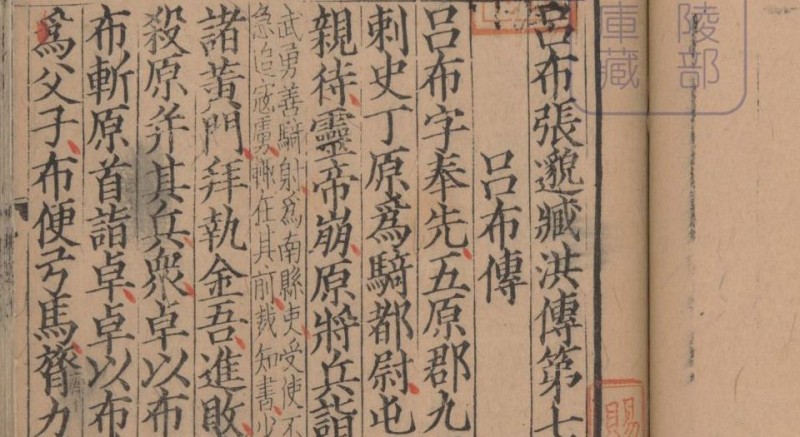 陵部
庫藏
呂布張邈臧洪傳第七
賜
呂布傳
呂布字奉先五原郡九
刺史丁原爲騎都尉屯
親待靈帝崩原將兵詣
武勇善騎射爲南縣吏受使不
急追寇虜輒在其前裁知書少
諸黃門拜執金吾進敗
殺原并其兵衆卓以布
布斬原首詣卓卓以布
爲父子布便弓馬膂力